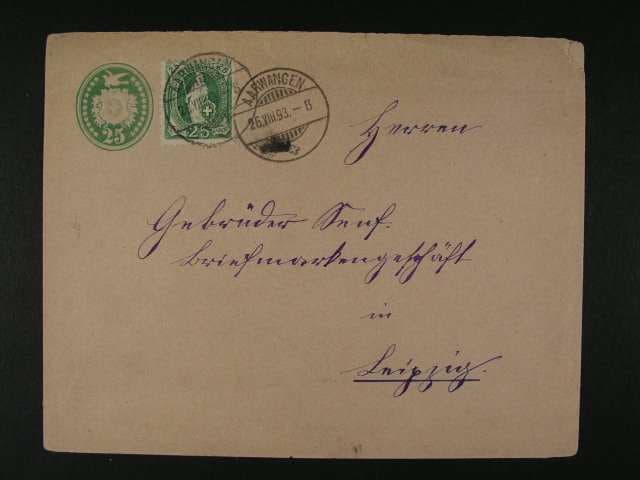 25
AARWANGEN
25
AARWANGEN
26.VIII.93.-8
Herren
Gebrüder Senf.
Briefmarkengeschäft
in
Leipzig.